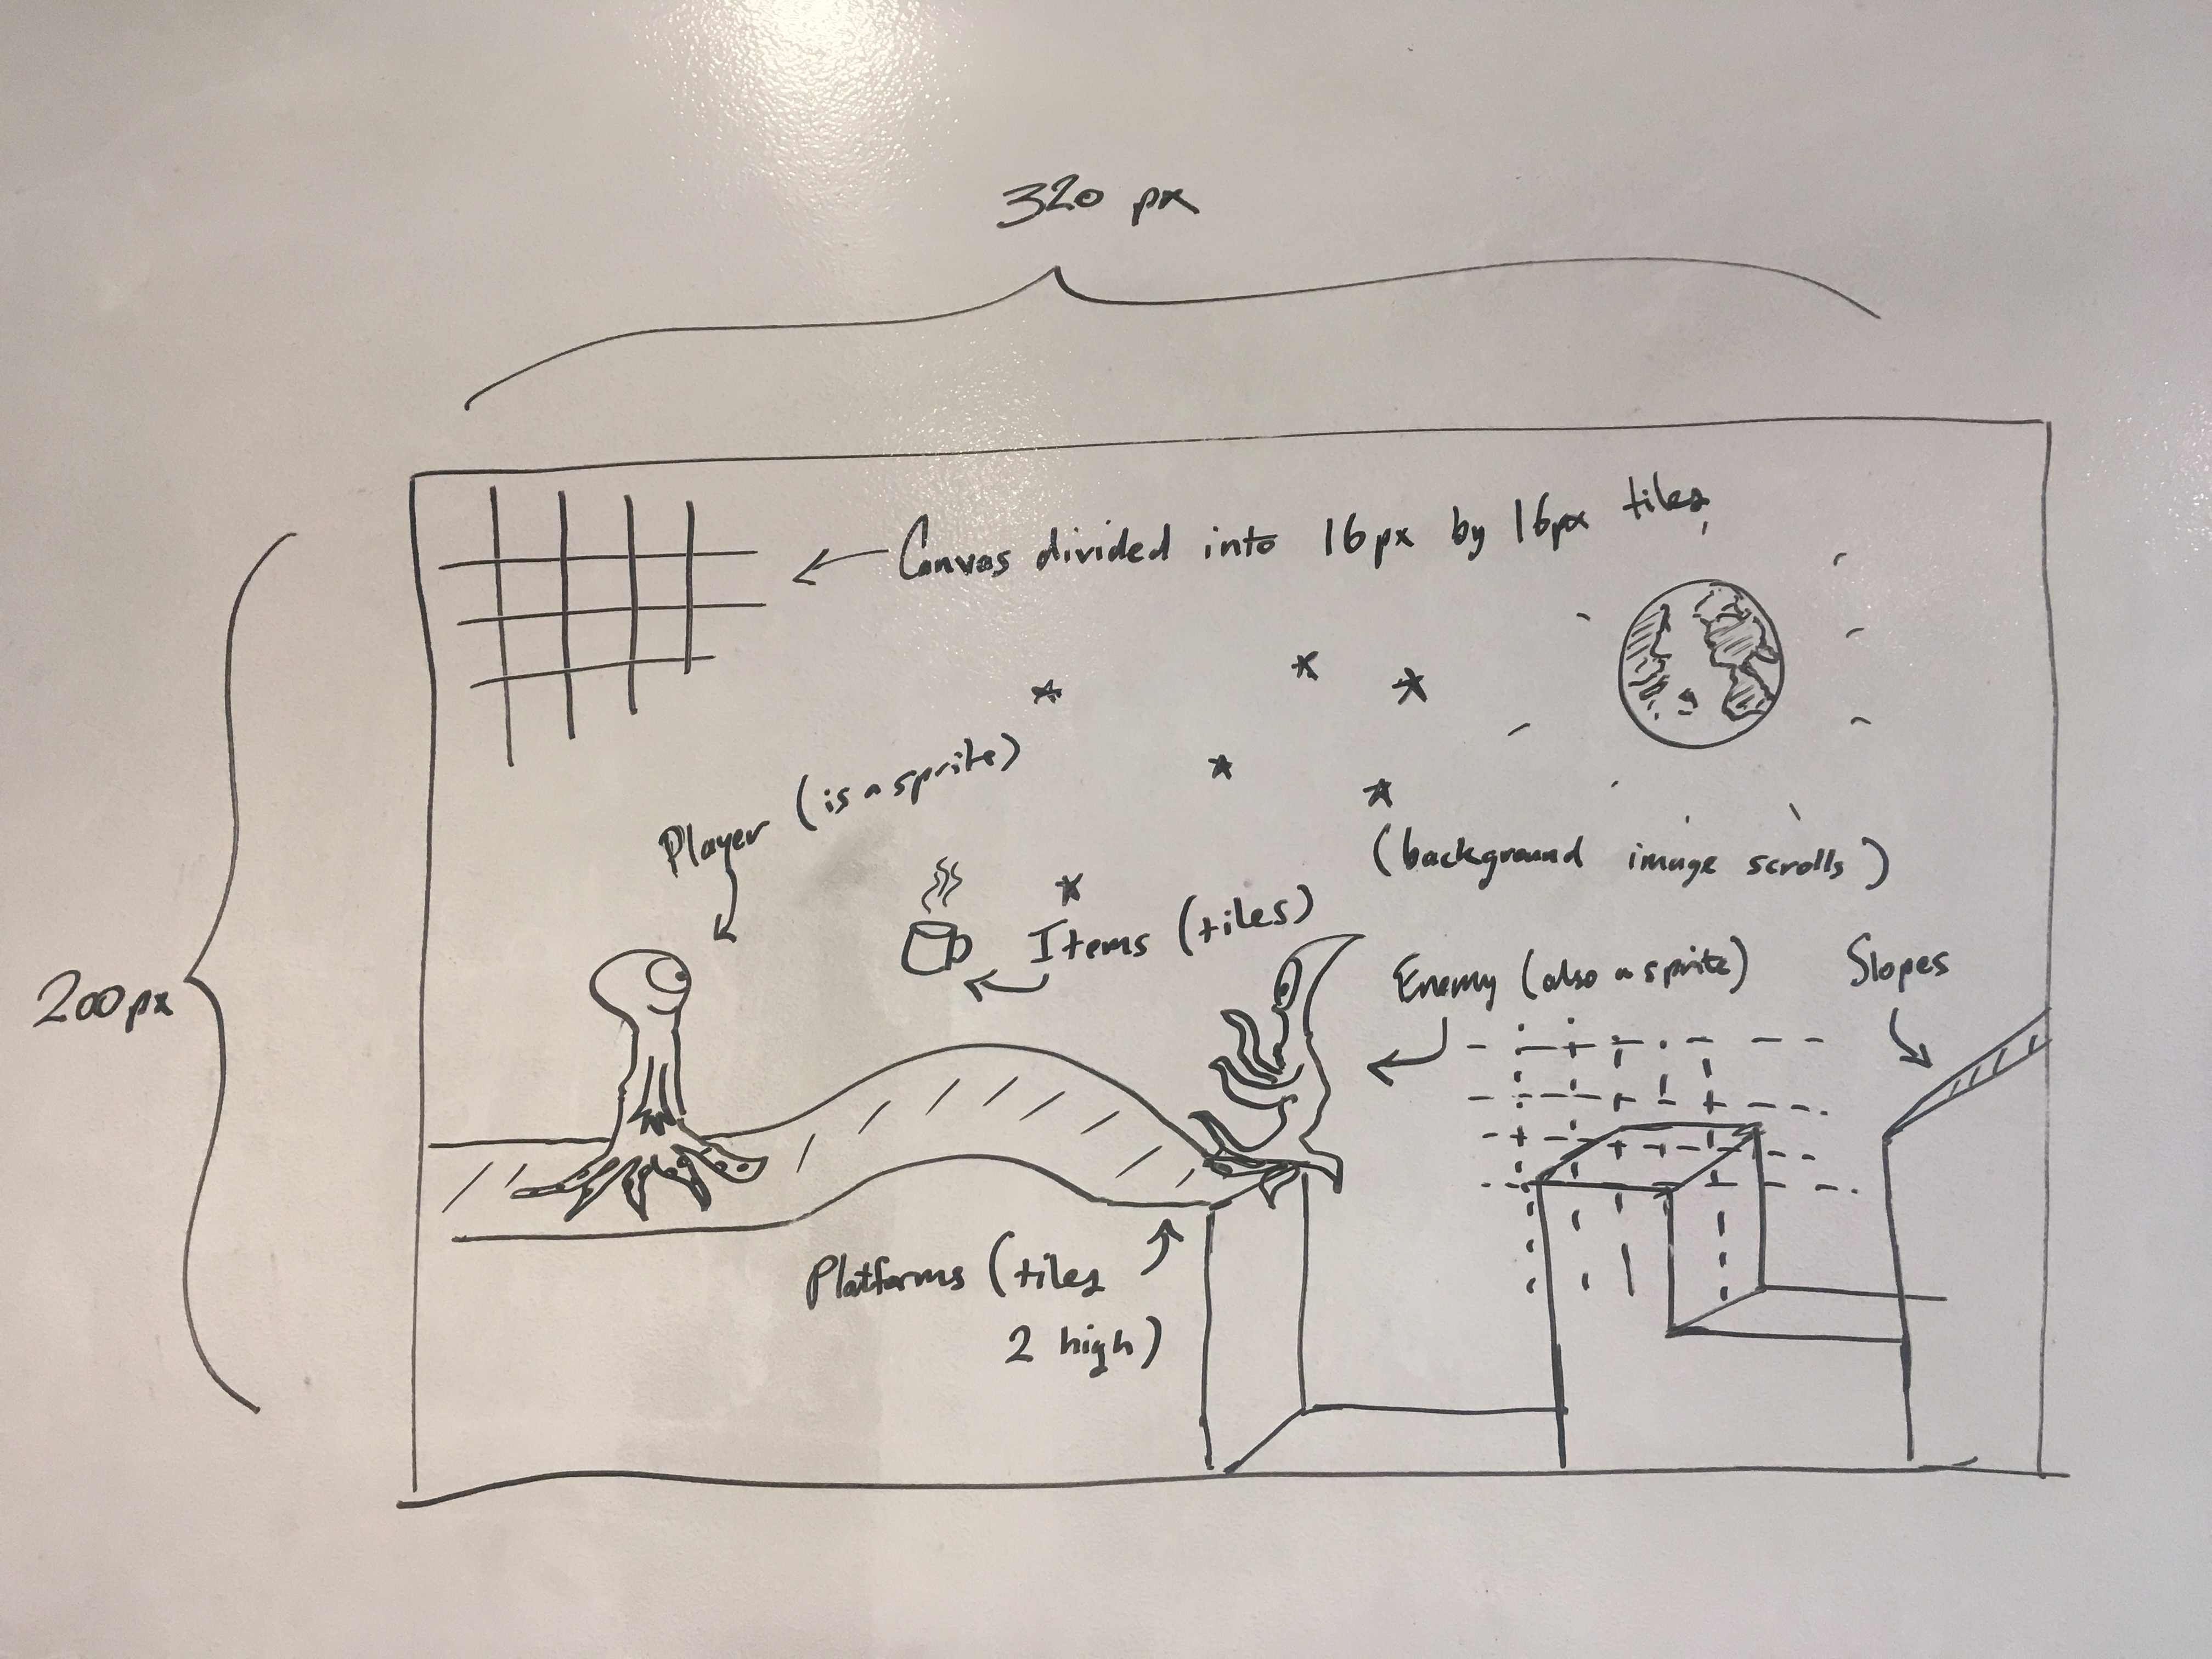 320 px
Canvas divided into 16px by 16px tiles
Player (is a sprite)
(background image scrolls)
Items (tiles)
Enemy (also a sprite)
Slopes
200px
Platforms (tiles
2 high)